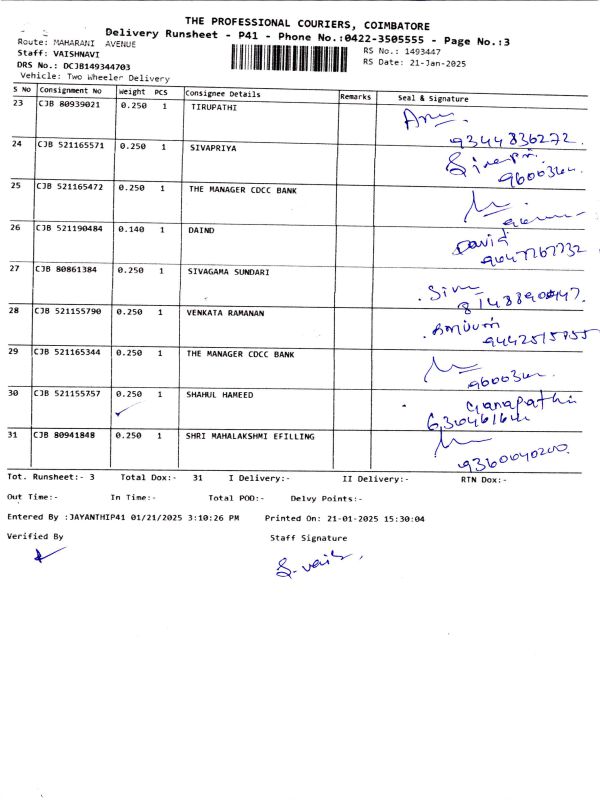 THE PROFESSIONAL COURIERS, COIMBATORE
Delivery Runsheet - P41 - Phone No.:0422-3505555 - Page No.:3
Route: MAHARANI AVENUE
RS No.: 1493447
Staff: VAISHNAVI
RS Date: 21-Jan-2025
DRS No.: DCJB149344703
Vehicle: Two Wheeler Delivery
S No Consignment No Weight PCS Consignee Details Remarks Seal & Signature
23 CJB 80939021 0.250 1 TIRUPATHI
9344836272
24 CJB 521165571 0.250 1 SIVAPRIYA
25 CJB 521165472 0.250 1 THE MANAGER CDCC BANK
26 CJB 521190484 0.140 1 DAIND David
27 CJB 80861384 0.250 1 SIVAGAMA SUNDARI
28 CJB 521155790 0.250 1 VENKATA RAMANAN
29 CJB 521165344 0.250 1 THE MANAGER CDCC BANK
30 CJB 521155757 0.250 1 SHAHUL HAMEED Ganapathi
31 CJB 80941848 0.250 1 SHRI MAHALAKSHMI EFILLING
9360040200
Tot. Runsheet:- 3 Total Dox:- 31 I Delivery:- II Delivery:- RTN Dox:-
Out Time:- In Time:- Total POD:- Delvy Points:-
Entered By :JAYANTHIP41 01/21/2025 3:10:26 PM Printed On: 21-01-2025 15:30:04
Verified By Staff Signature
S. vaish